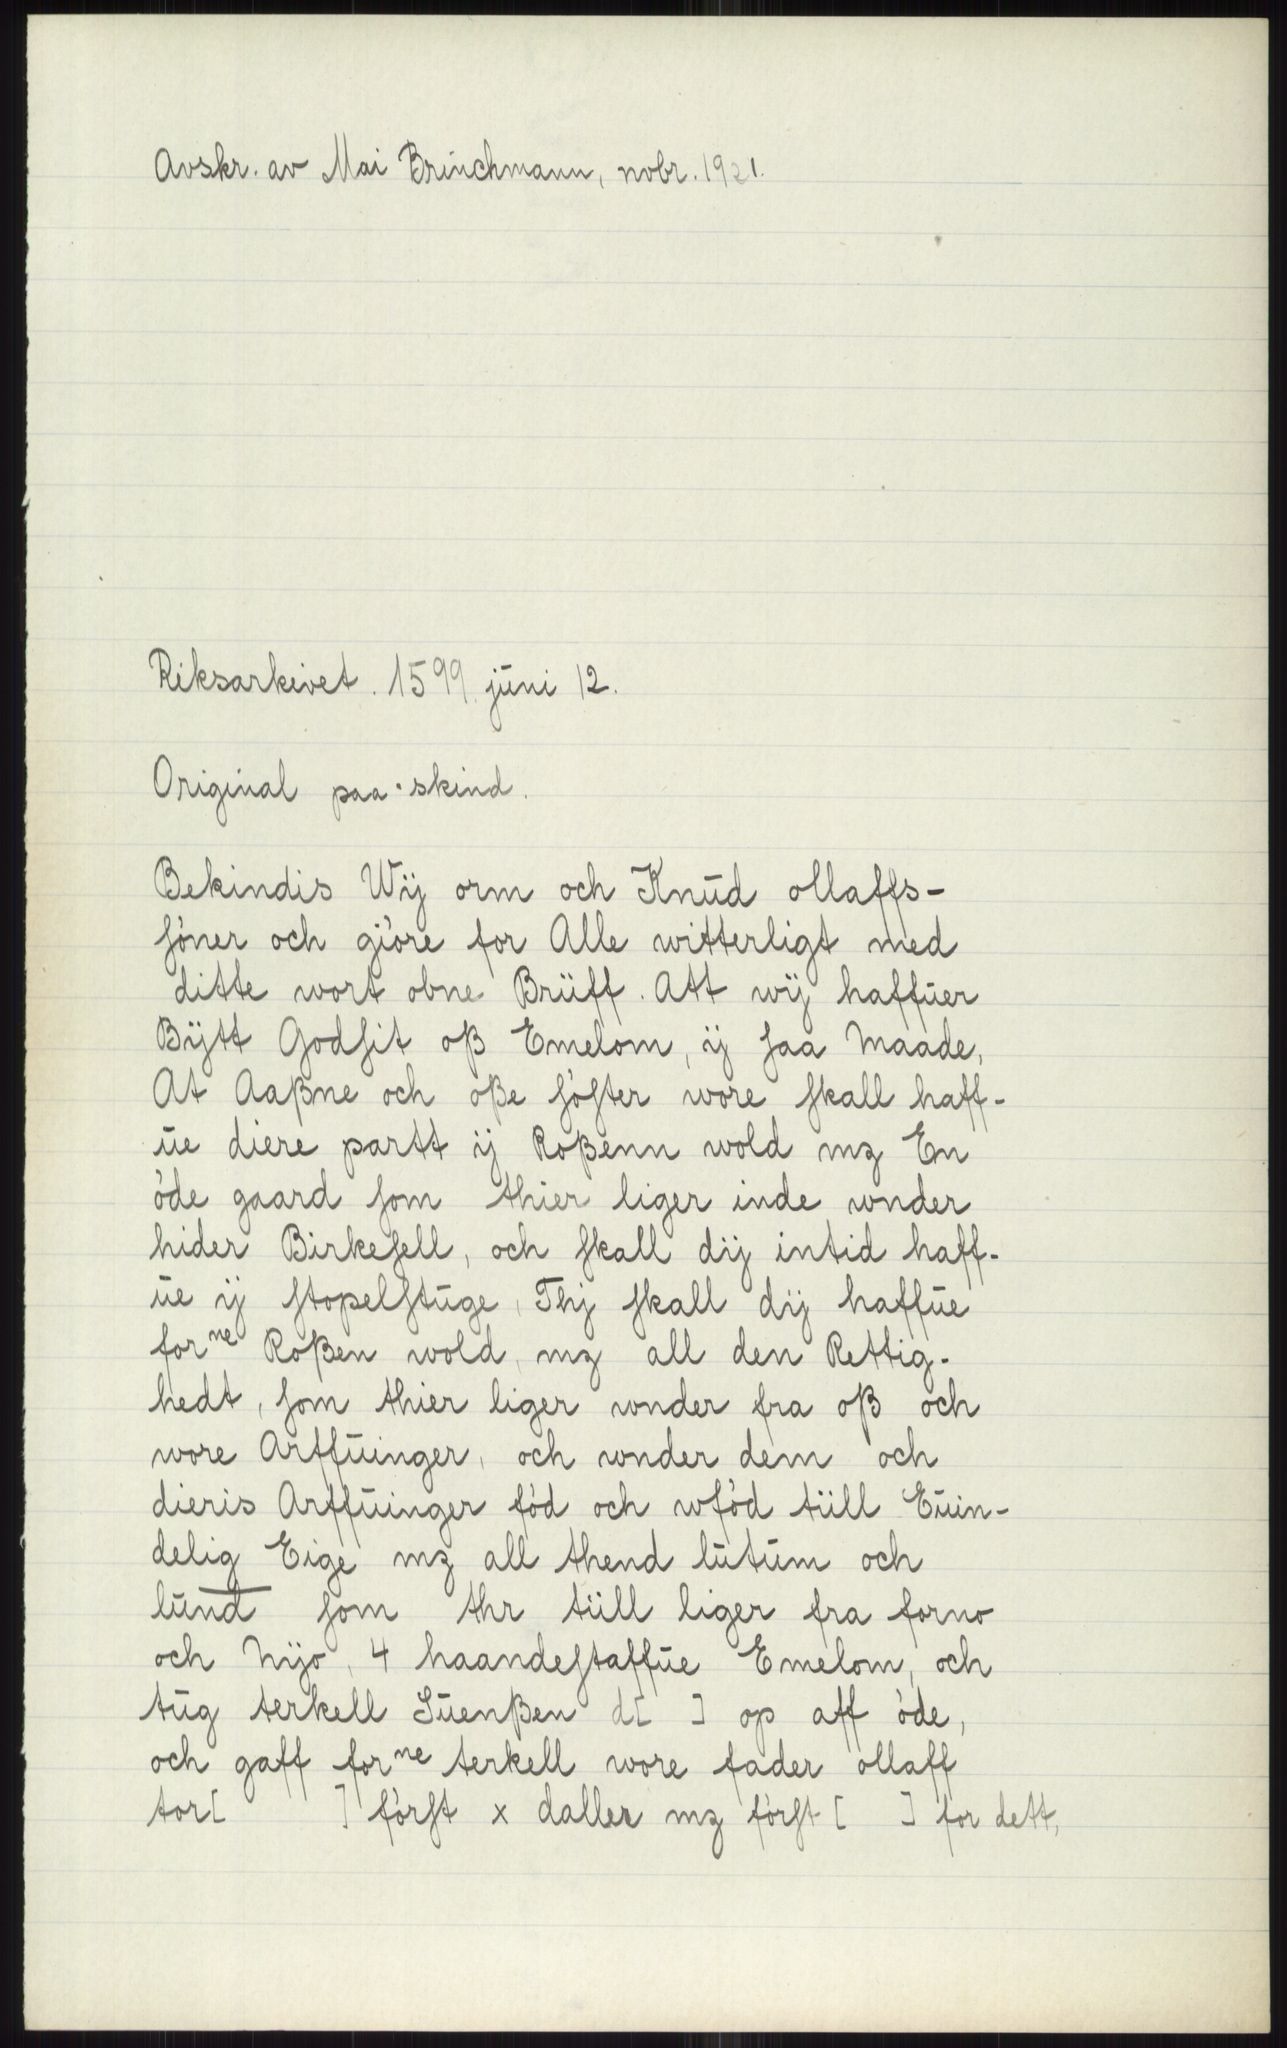 Avskr. av Mai Brinchmann, nvbr. 1921.
Riksarkivet. 1599. juni 12.
Original paa skind.
Bekindis Wij orm och Knud ollaffs-
söner och giöre for Alle witterligt med
ditte wort obne Brüff. Att wij haffuer
Bÿtt Godsit oß Emelom, ij saa Maade,
At Aaßne och oße söster wore skall haff-
ue diere partt ij Roßenn wold mz En
öde gaard som thier liger inde wnder
hider Birkesell, och skall dij intid haff-
ue ij stopelstuge, Thj skall dij haffue
forne Roßen wold, mz all den Rettig-
hedt, som thier liger wnder fra oß och
wore Arffuinger, och wnder dem och
dieris Arffuinger föd och wföd tüll Euin-
delig Eige mz all thend lutum och
lund som thr tüll liger fra forno
och Nyo, 4 haandestaffue Emelom, och
tug terkell Suenßen d[ ] op aff öde,
och gaff forne terkell wore fader ollaff
tor[ ] först x daller mz först [ ] for dett,